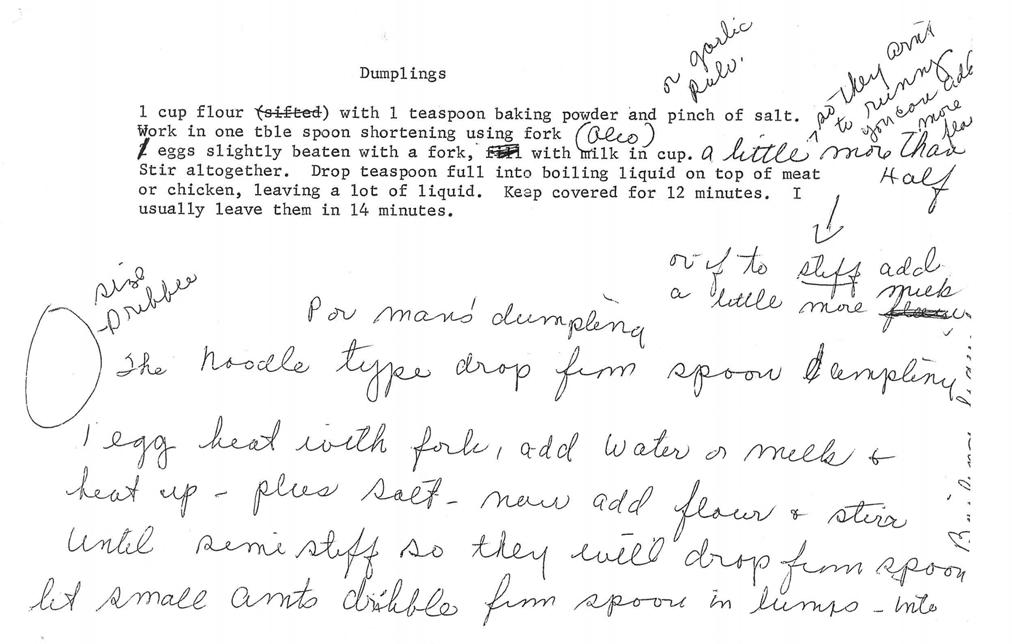 Dumplings
or garlic
pulv.
1 cup flour (sifted) with 1 teaspoon baking powder and pinch of salt.
Work in one tble spoon shortening using fork (Oleo)
1 eggs slightly beaten with a fork, fill with milk in cup. a little more than
Half
Stir altogether. Drop teaspoon full into boiling liquid on top of meat
or chicken, leaving a lot of liquid. Keep covered for 12 minutes. I
usually leave them in 14 minutes.
so they arn't
to runny
you can add
more
flo
or if to stiff add
a little more milk
size
dribble
Por man's dumpling
The Noodle type drop from spoon dumpling
1 egg beat with fork, add water or milk &
beat up - plus salt - now add flour & stirr
until semi stiff so they will drop from spoon
let small amts dribble from spoon in lumps - into